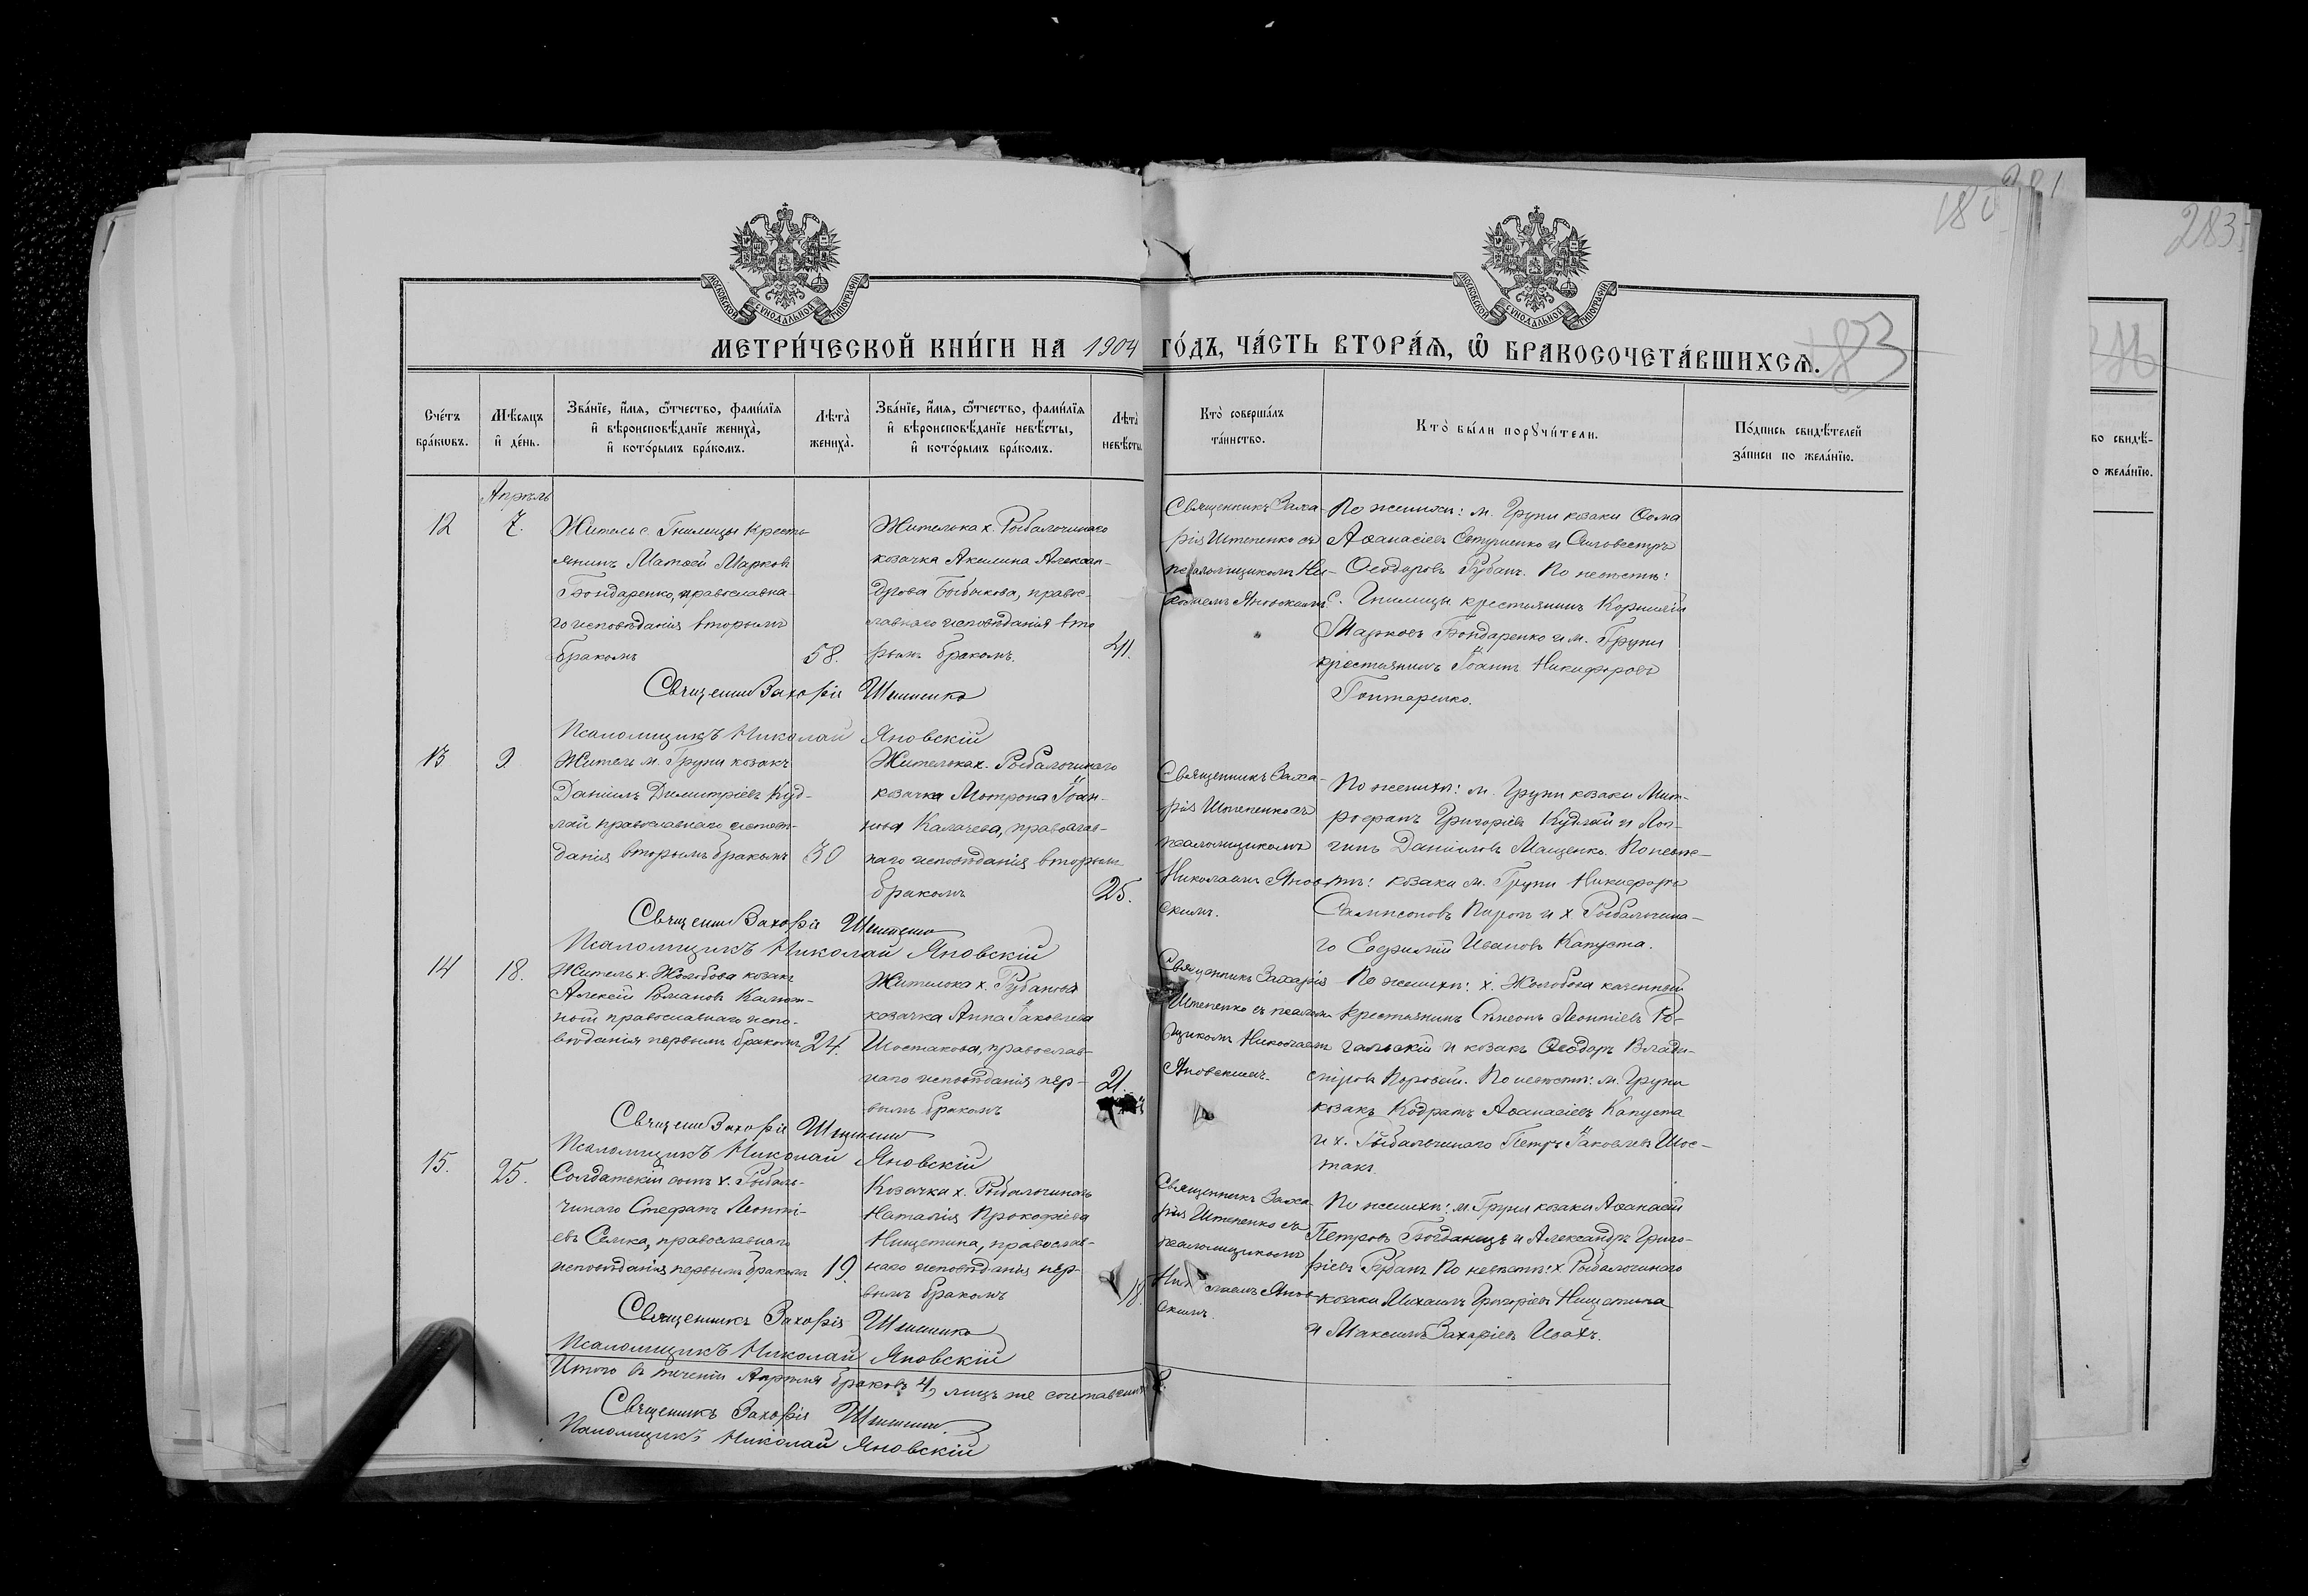 283
180
МОСКОВСКОЙ СѴНОДАЛЬНОЙ ТИПОГРАФІИ
МОСКОВСКОЙ СѴНОДАЛЬНОЙ ТИПОГРАФІИ
МЕТРИ́ЧЕСКОЙ КНИ́ГИ НА 1904 ГО́ДЪ, ЧА́СТЬ ВТОРА́Ѧ, Ѽ БРАКОСОЧЕТА́ВШИХСѦ.
183
Сче́тъ
бра́кѡвъ.
Мѣ́сяцъ
и҆ де́нь.
Зва́нїе, и҆́мѧ, ѻ҆́тчество, фами́лїѧ
и҆ вѣроисповѣ́данїе жениха̀,
и҆ кото́рымъ бра́комъ.
Лѣта̀
жениха̀.
Зва́нїе, и҆́мѧ, ѻ҆́тчество, фами́лїѧ
и҆ вѣроисповѣ́данїе невѣ́сты,
и҆ кото́рымъ бра́комъ.
Лѣта̀
невѣ́сты
Кто̀ соверша́лъ
та́инство.
Кто̀ бы́ли порꙋчи́тели.
По́дпись свидѣ́телей
за́писи по жела́нїю.
Апрѣль
12
7.
Житель с. Гнилицы кресть-
янинъ Матѳей Марковъ
Бондаренко, православна-
го исповѣданія вторымъ
бракомъ
58.
Жителька х. Рыбалочинаго
козачка Акилина Алексан-
дрова Бибикова, правос-
лавнаго исповѣданія вто
рымъ бракомъ.
41.
Священникъ Заха-
рія Штепенко съ
псаломщикомъ Ни-
колаемъ Яновскимъ
По женихѣ: м. Груни козаки Ѳома
Аѳанасіевъ Евтушенко и Сильвестръ
Ѳеодоровъ Рубанъ. По невѣстѣ:
с. Гнилицы крестьянинъ Корнилій
Марковъ Бондаренко и м. Груни
крестьянинъ Іоаннъ Никифоровъ
Гонтаренко.
Священик Захарія Штепенко
Псаломщикъ Николай Яновскій
13
9
Житель м. Груни козакъ
Даніилъ Димитріевъ Куд-
лай православнаго исповѣ-
данія вторымъ бракомъ
30
Жителька х. Рыбалочинаго
козачка Мотрона Іоан-
нова Калачева, православ-
наго исповѣданія вторымъ
бракомъ
25.
Священникъ Заха-
рія Штепенко съ
псаломщикомъ
Николаемъ Янов-
скимъ.
По женихѣ: м. Груни козаки Мит-
рофанъ Григоріевъ Кудлай и Лон-
гинъ Даниловъ Мащенко. По невѣс-
тѣ: козаки м. Груни Никифоръ
Сампсоновъ Пирогъ и х. Рыбалочина-
го Евфимій Ивановъ Капуста.
Священик Захарія Штепенко
Псаломщикъ Николай Яновскій
14
18.
Житель х. Жолобова козакъ
Алексій Романовъ
православнаго испо-
вѣданія первымъ бракомъ
24.
Жителька х. Рубанова
козачка Анна Іаковлева
Шостакова, православ-
наго исповѣданія пер-
вымъ бракомъ
21.
Священникъ Захарія
Штепенко съ псалом
щикомъ Николаемъ
Яновскимъ.
По женихѣ: х. Жолобова казенный
крестьянинъ Симеонъ Леонтіевъ Ро-
гальскій и козакъ Ѳеодоръ Влади-
міровъ Поровай. По невѣстѣ: м. Груни
козакъ Кодратъ Аѳанасіевъ Капуста
и х. Рыбалочинаго Петръ Іаковлевъ Шос-
такъ.
Священик Захарія Штепенко
Псаломщикъ Николай Яновскій
15.
25.
Солдатскій сынъ х. Рыбало-
чинаго Стефанъ Леонті-
евъ Семка, православнаго
исповѣданія первымъ бракомъ
19.
Козачка х. Рыбалочинаго
Наталія Прокофіева
Нищетина, православ-
наго исповѣданія пер-
вымъ бракомъ
18.
Священникъ Заха-
рія Штепенко съ
псаломщикомъ
Николаемъ Янов-
скимъ.
По женихѣ: м. Груни козаки Аѳанасій
Петровъ Богданецъ и Александръ Григо-
ріевъ Рубанъ. По невѣстѣ: х. Рыбалочинаго
козаки Михаилъ Григоріевъ Нищетина
и Максимъ Захаріевъ Ивахъ.
Священникъ Захарія Штепенко
Псаломщикъ Николай Яновскій
Итого въ теченіи Апрѣля браковъ 4, лицъ же сочитавшихся 8.
Священикъ Захарія Штепенко
Псаломщикъ Николай Яновскій
во свидѣ́-
о жела́нїю.